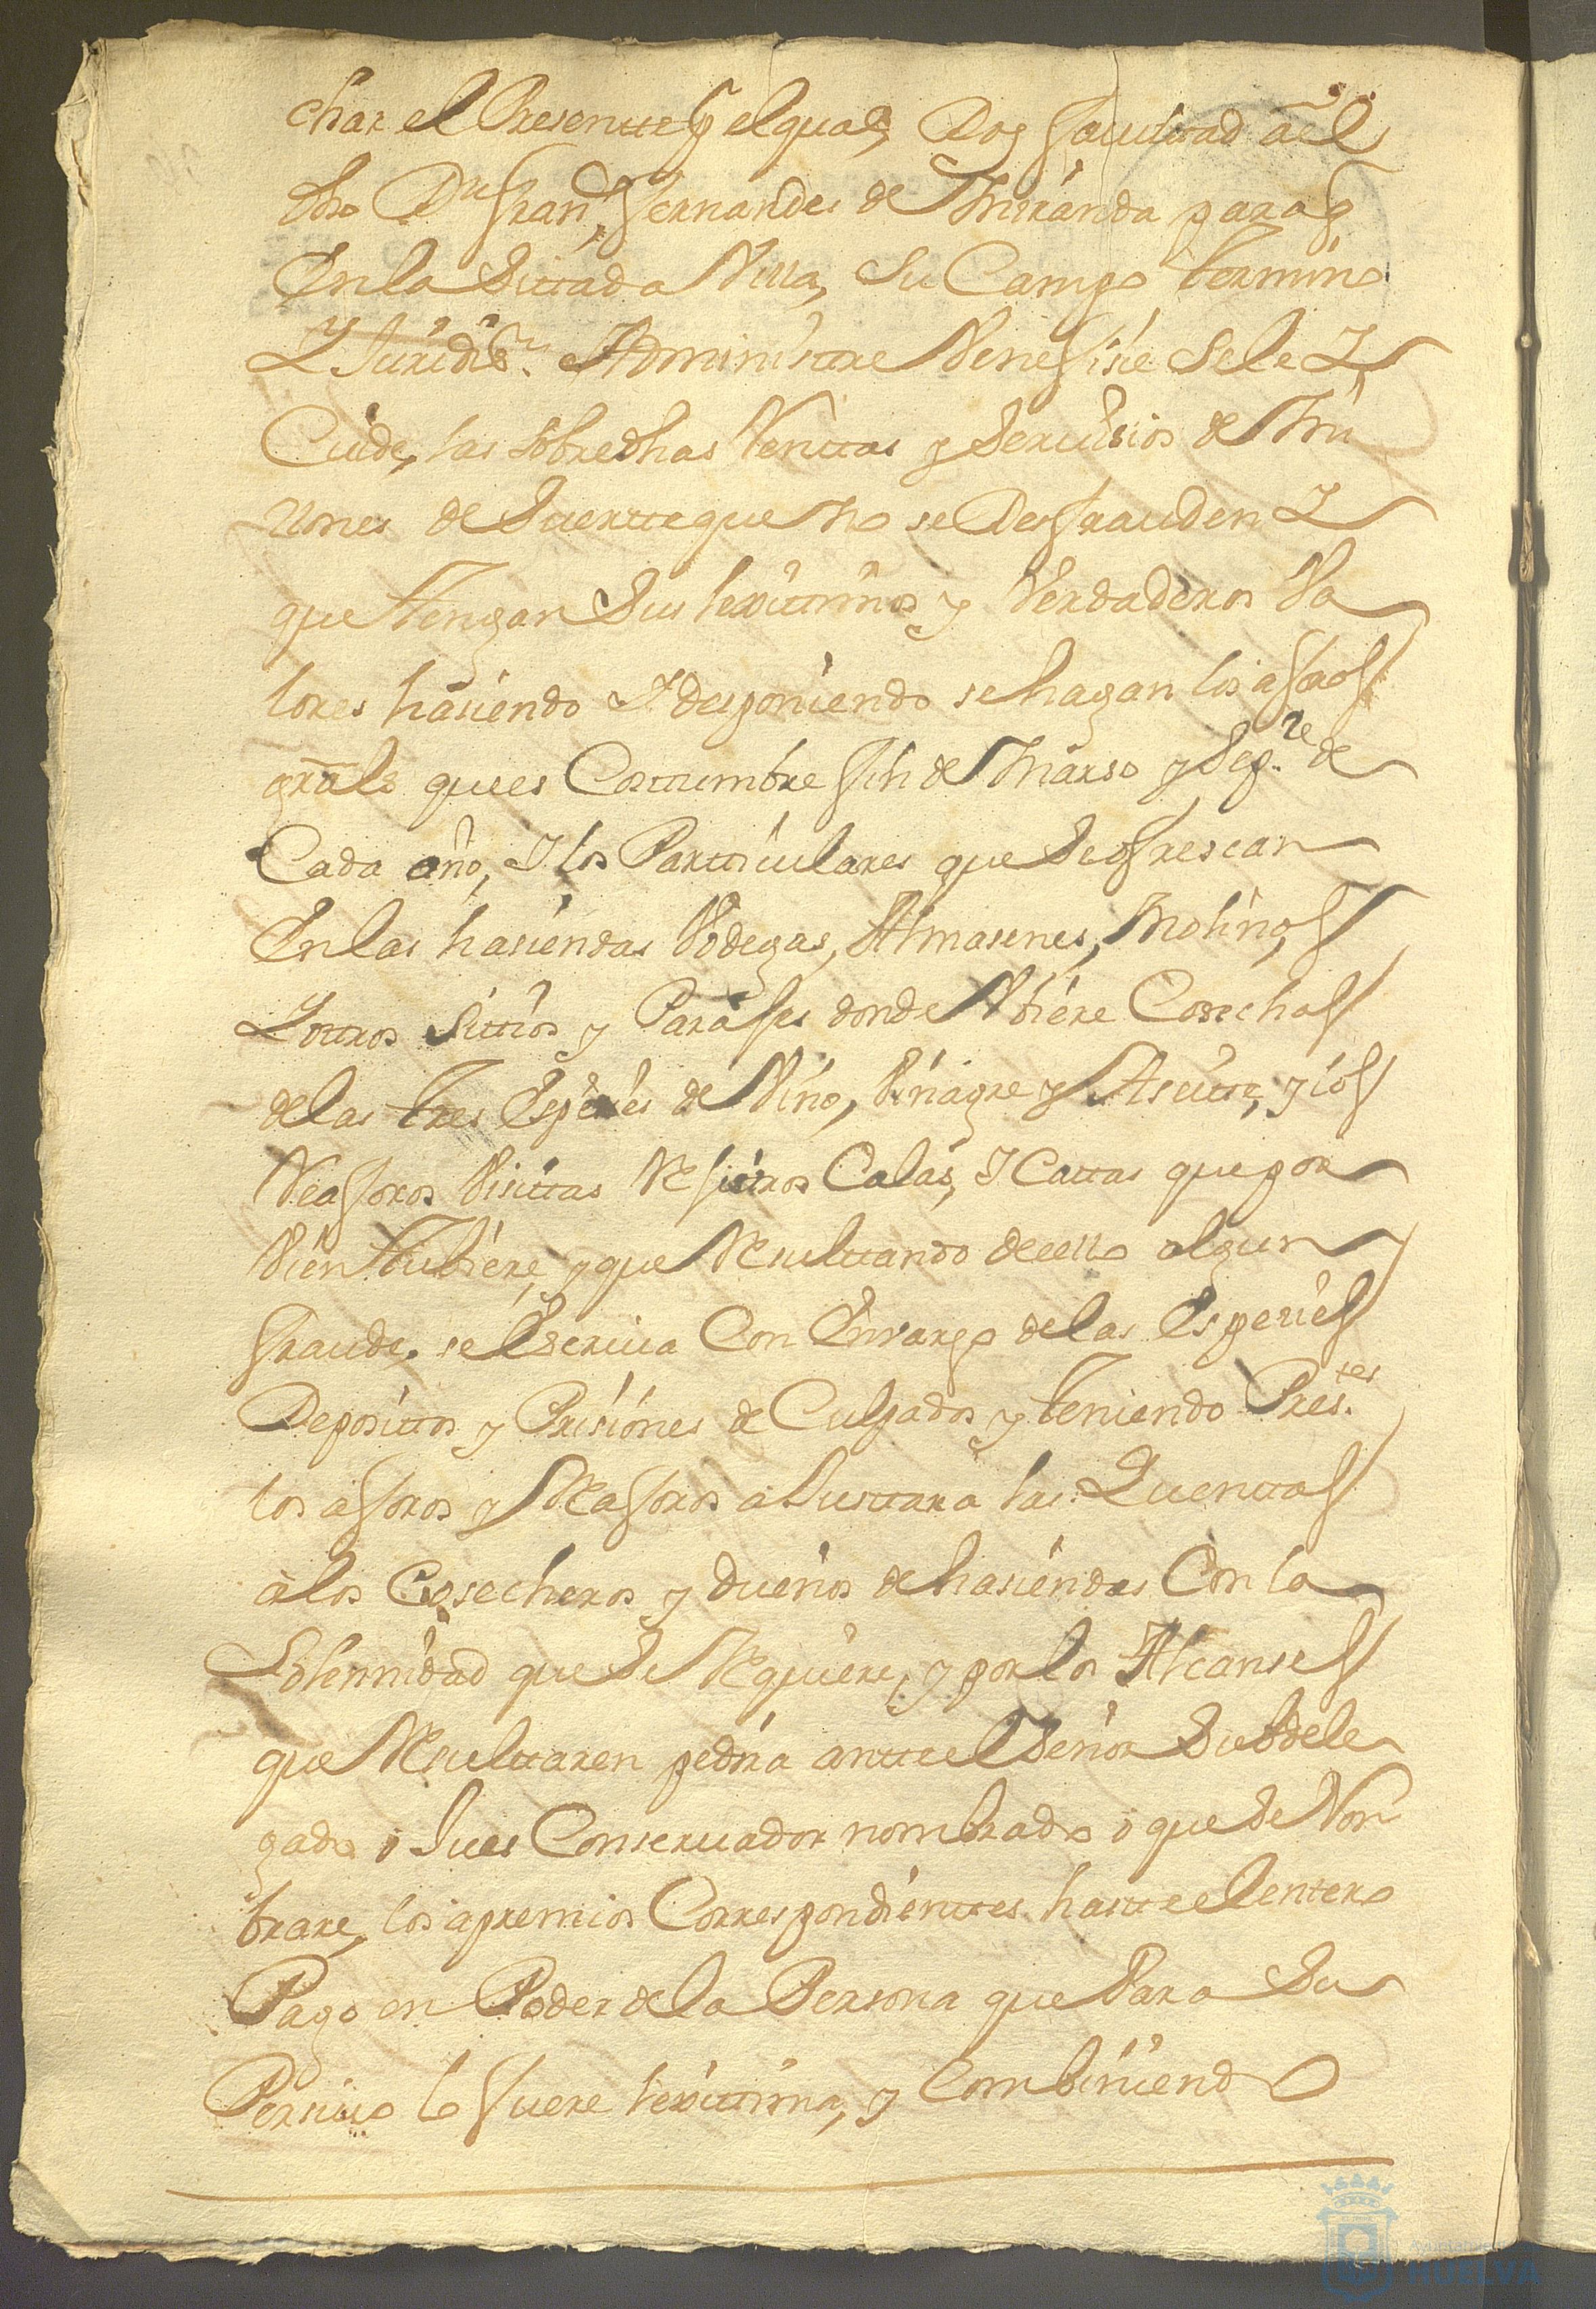 char el Presentte, p.r el qual, Doy facultad a el
dho Dn Fran.co Fernandes de Miranda para q
En la Sittada Villa, Su Campo termino
Y Juridis.on Administre Venefisie Sele Y
Cuide, las sobredhas Renttas y Serbisios de Mi
llones de Suertte que no se Defrauden Y
que Tengan Sus lexittimos y Verdaderos Va
lores hasiendo Y desponiendo se hagan los aforos
grales que es Costtumbre fin de Marso y Sep.re de
Cada año, Y los Partticulares que Se ofrescan
En las hasiendas Bodegas, Almasenes, Molinos
Y ottros Sittios y Parajes donde Ubiere Cosechas
de las tres Espesies de Vino, Vinagre y Aseitte, y los
Reaforos Visittas Rejittros Calas, Y Cattas que por
Bien Tubiere, y que Resulttando de ello algun
fraude, se Escriva Con Envargo de las Espesies
Deposittos y Prisiones de Culpados y Teniendo Pres.tes
los aforos y Reaforos a Justtara las Quenttas
a los Cosecheros y dueños de hasiendas Con la
Solemnidad que Se Requiere, y por los Alcanses
que Resulttaren pedira antte el Señor Subdele
gado o Jues Conservador nombrado o que Se Nom
brare, los apremios Correspondienttes hastte el entero
Pago en Poder de la Persona que Para Su
Persivo lo fuere lexittima, y Combiniendo
Ayuntamiento de
HUELVA